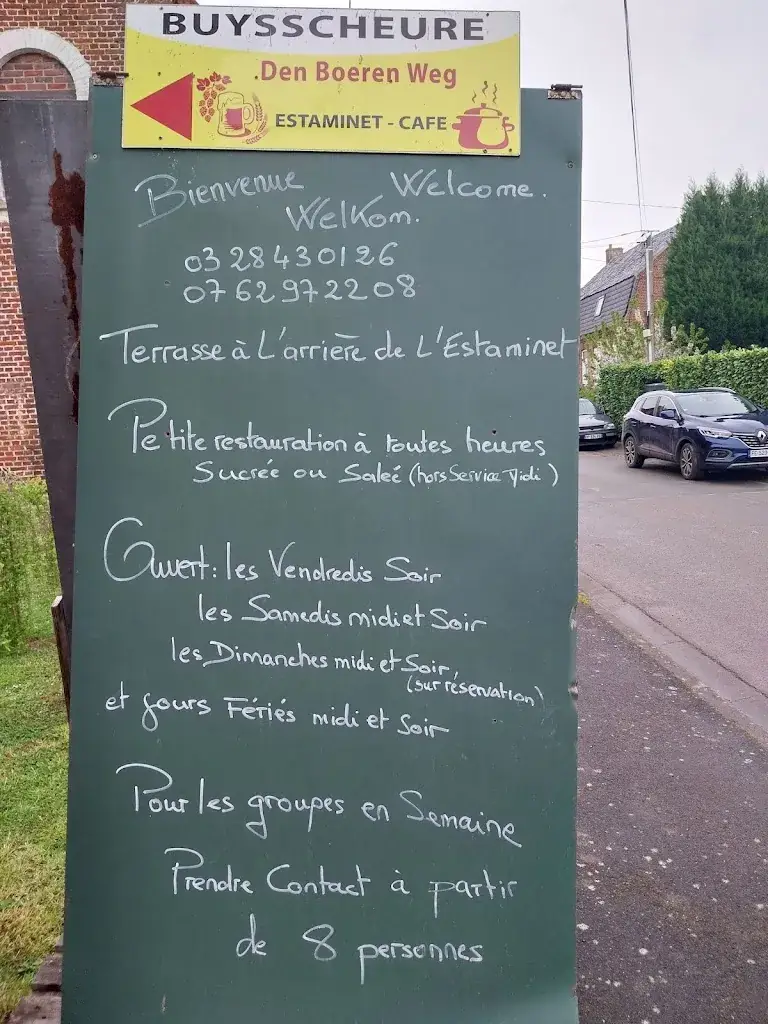 BUYSSCHEURE
Den Boeren Weg
ESTAMINET - CAFE
Bienvenue Welcome.
Welkom.
03 28 43 01 26
07 62 97 22 08
Terrasse à L'arrière de L'Estaminet
Petite restauration à toutes heures
Sucrée ou Salée (hors Service Midi)
Ouvert : les Vendredis Soir
les Samedis midi et Soir
les Dimanches midi et Soir
(sur réservation)
et jours Fériés midi et Soir
Pour les groupes en Semaine
Prendre Contact à partir
de 8 personnes